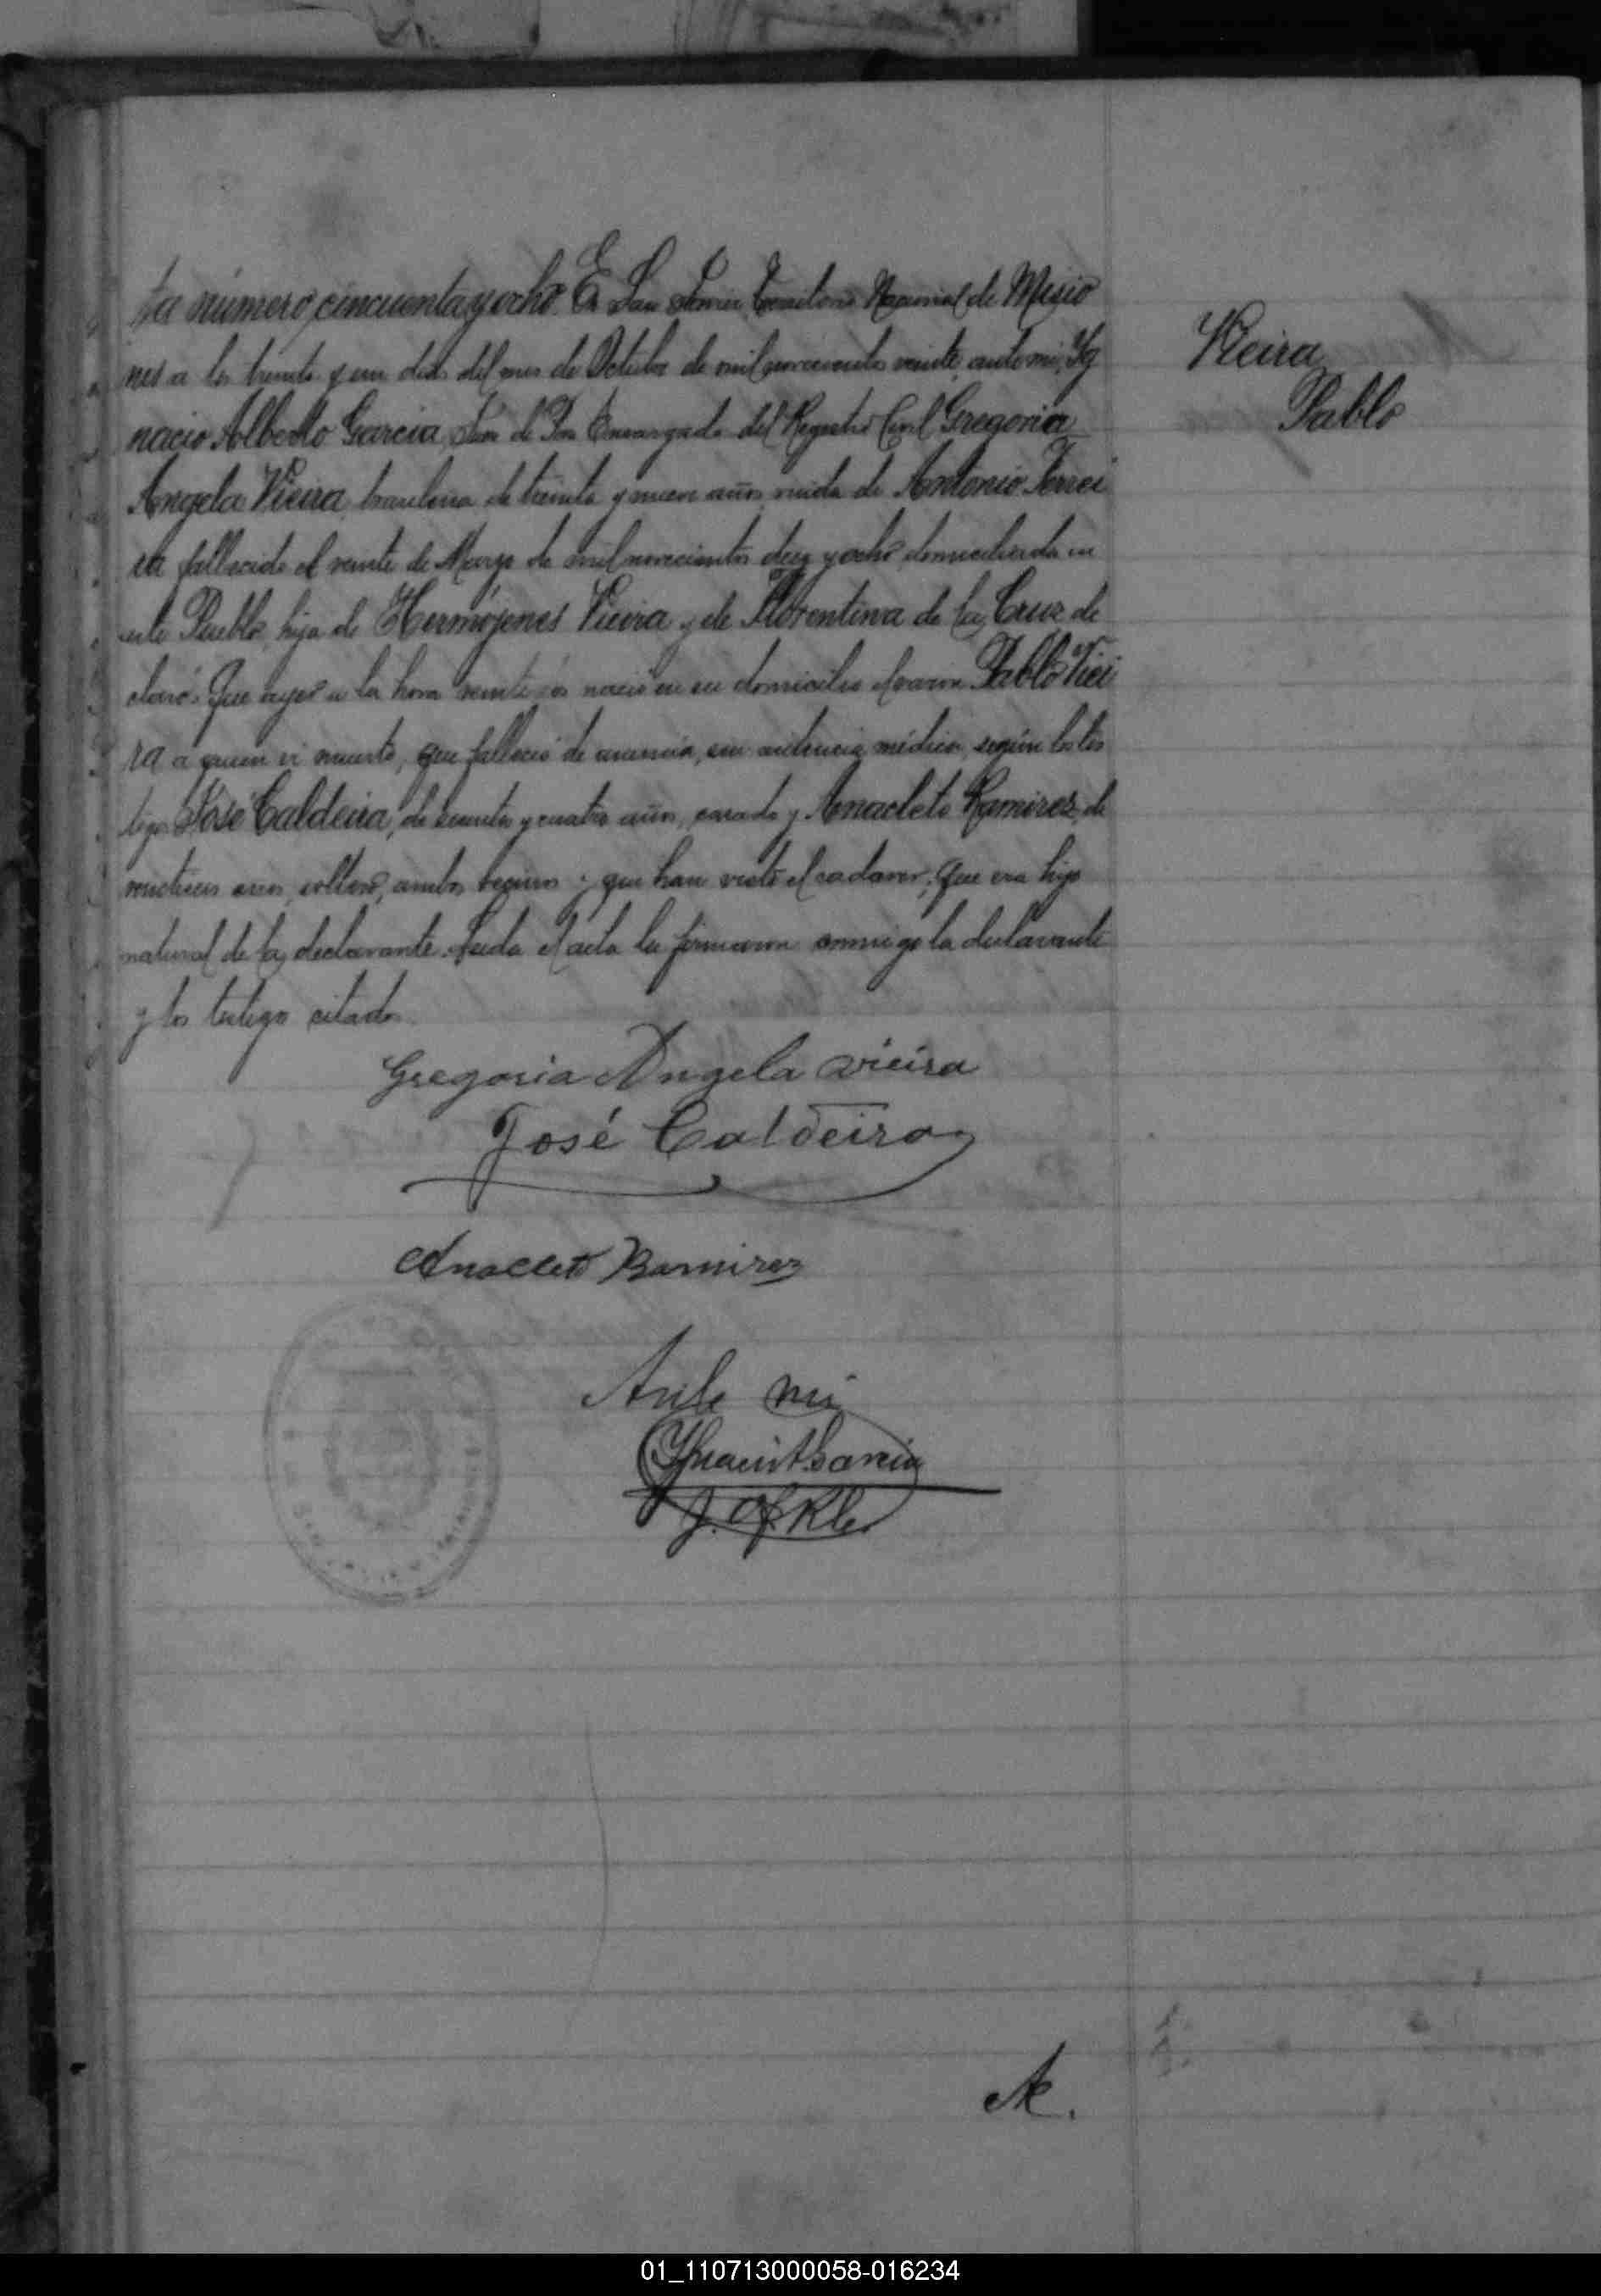 ta número cincuenta y ocho. En San Javier Territorio Nacional de Misio
nes a los treinta y un dias del mes de Octubre de mil novecientos veinte, ante mi, Yg
nacio Alberto Garcia, Juez de Paz Encargado del Registro Civil Gregoria
Angela Vieira, brasilera de treinta y nueve años viuda de Antonio Ferrei
ra fallecido el veinte de Mayo de mil novecientos diez y ocho domiciliada en
este Pueblo, hija de Hermójenes Vieira y de Florentina de la Cruz de
claró: Que ayer a la hora veinte nació en su domicilio el varon Pablo Viei
ra a quien vi muerto, que falleció de, sin asistencia médica, según los tes
tigos José Caldeira, de y cuatro años, casado y Anacleto Ramirez, de
años, soltero, ambos vecinos y que han visto el cadaver; Que era hijo
natural de la declarante. Leida el acta la firmaron conmigo la declarante
y los testigos citados.
Vieira
Pablo
Gregoria Angela Vieira
José Caldeira
Anacleto Ramirez
Ante mi
01_110713000058-016234